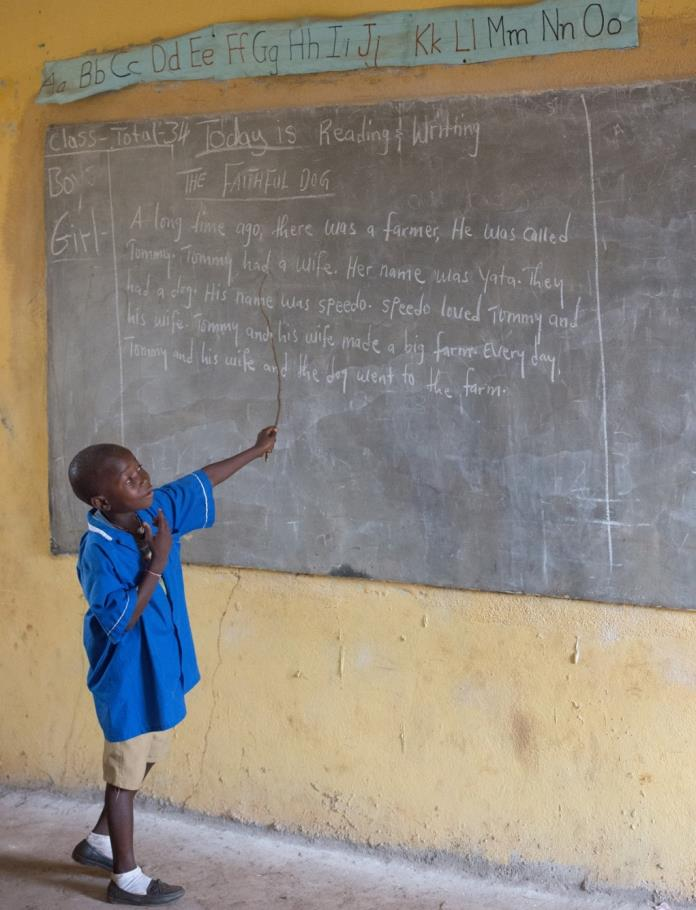 Aa Bb Cc Dd Ee Ff Gg Hh Ii Jj Kk Ll Mm Nn Oo
Class- Total-34 Today is Reading & Writting
Boys
THE FAITHFUL DOG
Girl-
A long time ago, there was a farmer, He was called
Tommy. Tommy had a wife. Her name was Yata. They
had a dog. His name was speedo. speedo loved Tommy and
his wife. Tommy and his wife made a big farm. Every day,
Tommy and his wife and the dog went to the farm.